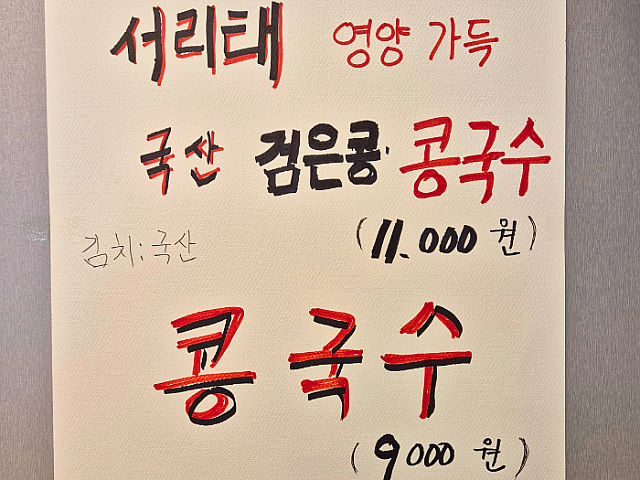 서리태 영양 가득
국산 검은콩 콩국수
(11.000 원)
김치: 국산
콩국수
(9000 원)